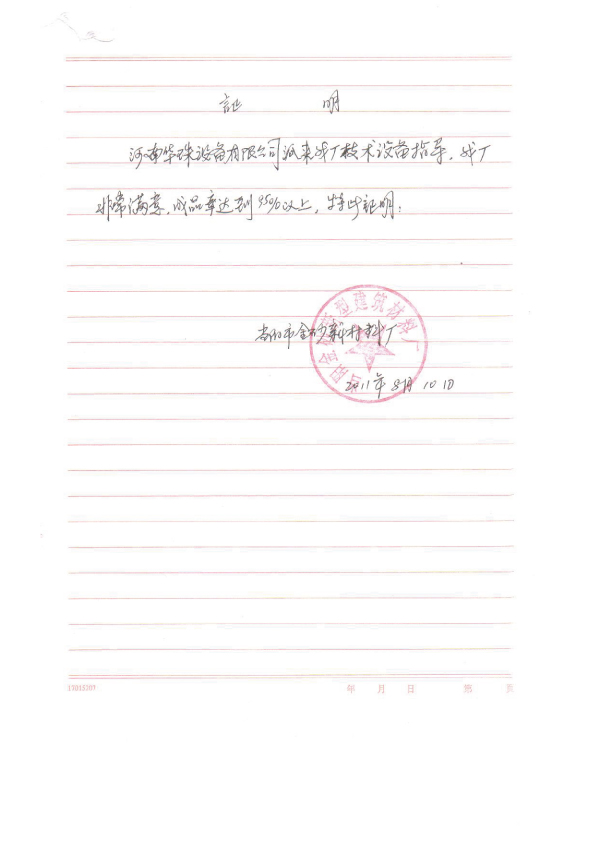 证 明
河南华珠设备有限公司派来我厂技术设备指导，我厂
非常满意，成品率达到95%以上，特此证明：
当阳市金 新材料厂
型建筑材料厂
2011年8月10日
17015707 年 月 日 第 页